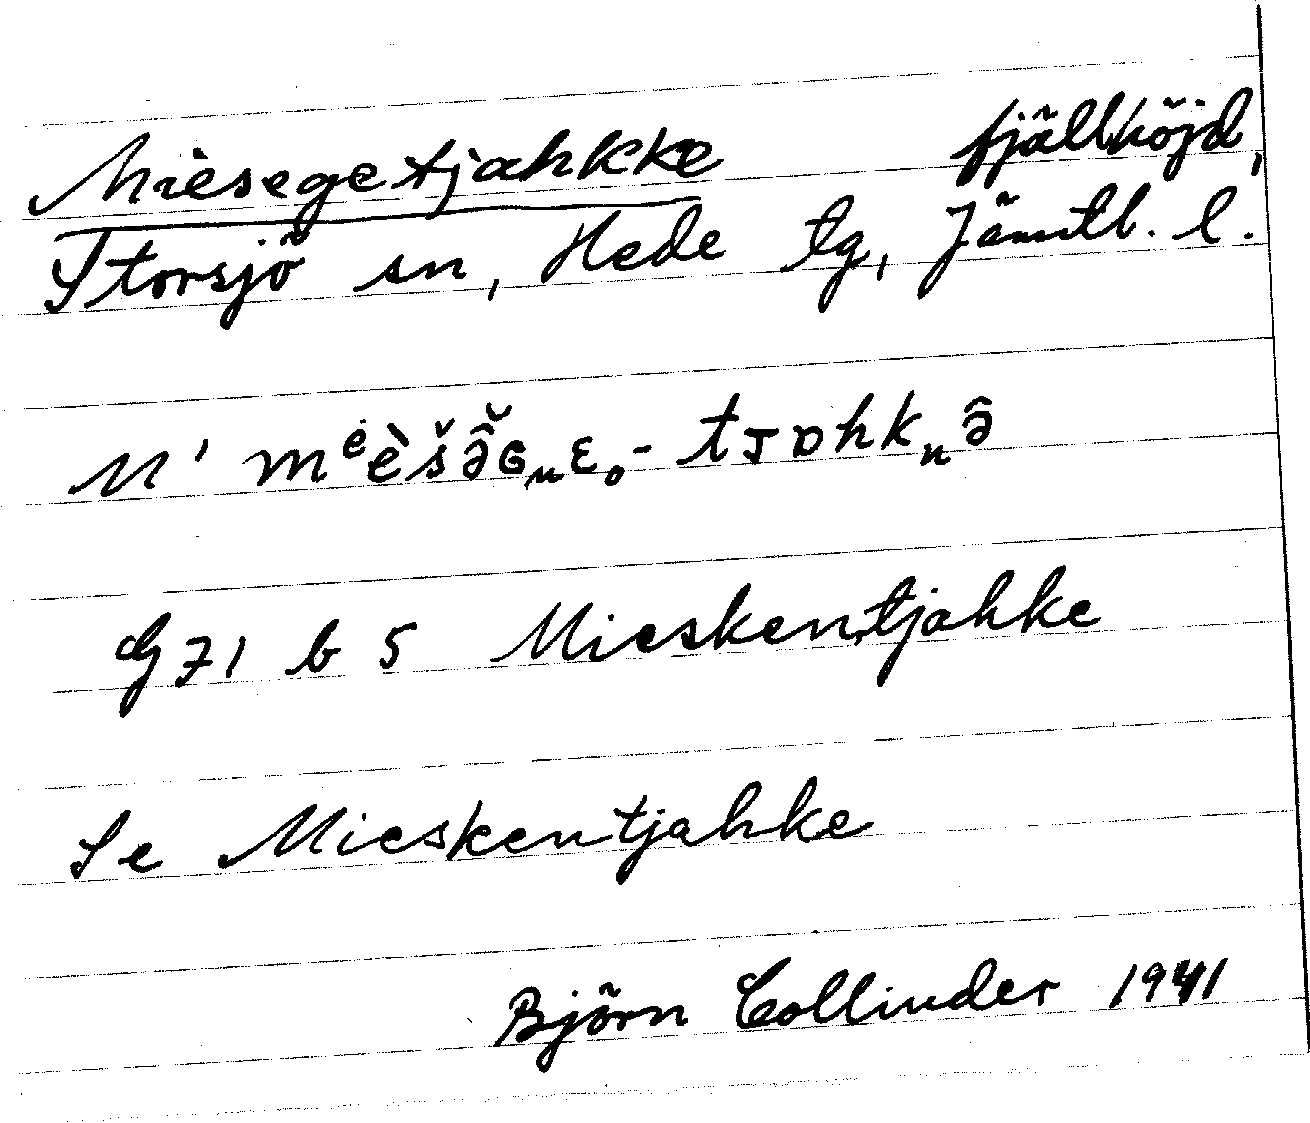 Mïesegetjahkke fjällhöjd,
Storsjö sn, Hede tg, Jämtl. l.
N' mᵉ̇èšə̂̌ɢₙɛₒ- tᴊɒhkₙə̂
G 71 b 5 Mieskentjahke
Se Mieskentjahke
Björn Collinder 1941